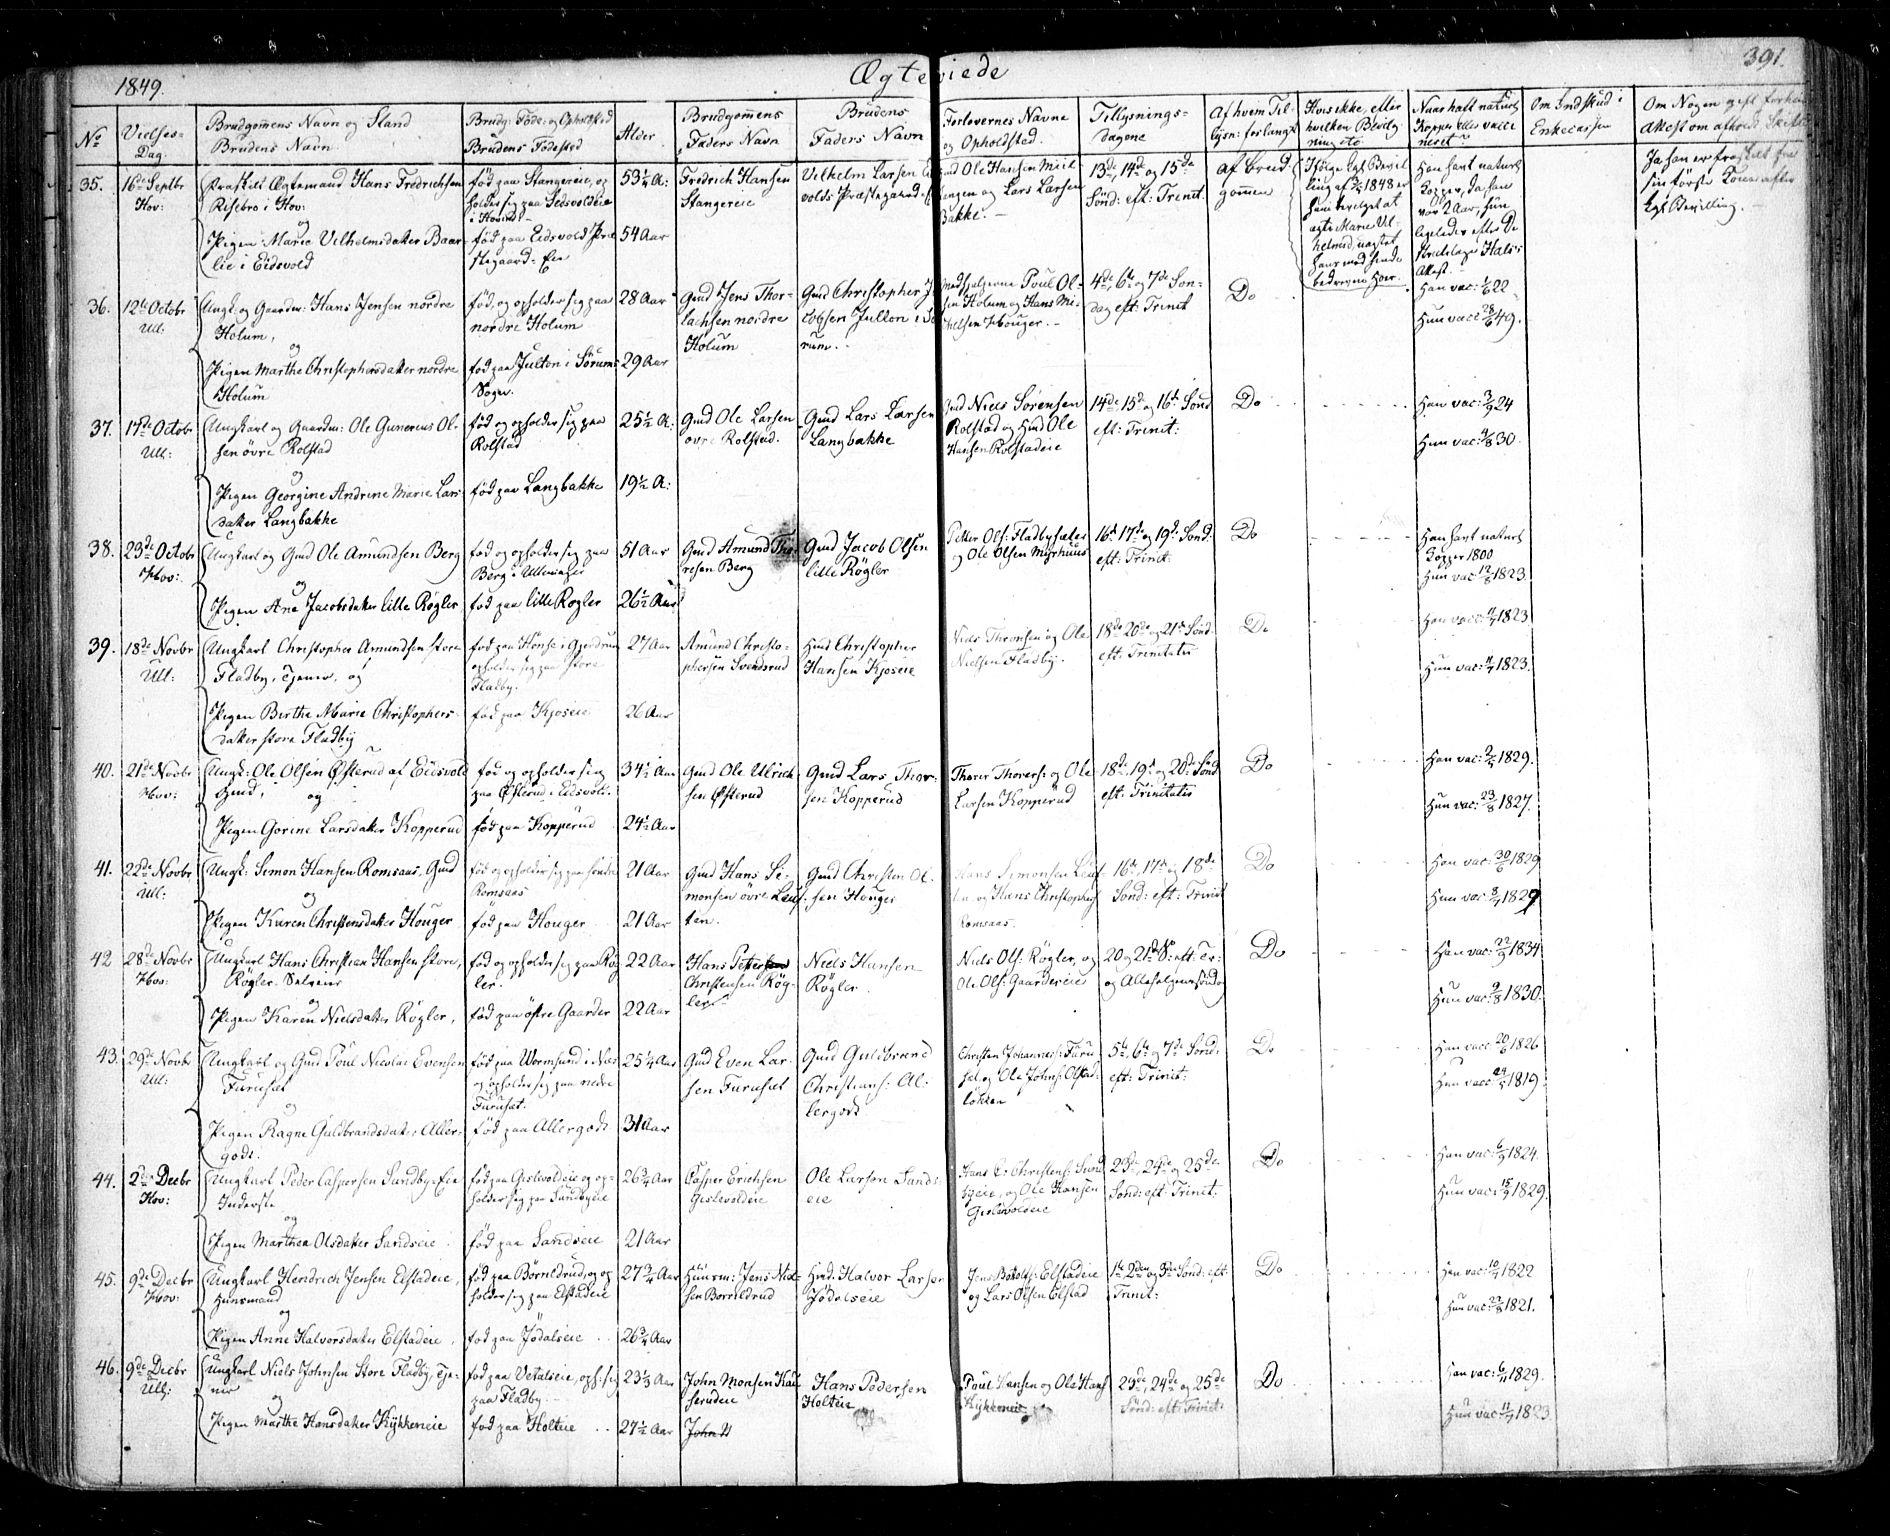 1849.
Ægteviede
391.
No
Vielses-
Dag.
Brudgommens Navn og Stand
Brudens Navn
Brudg: Føde- og Opholdsted
Brudens Fødested
Alder
Brudgommens
Faders Navn
Brudens
Faders Navn
Forlovernes Navne
og Opholdsted.
Tillysnings-
dagene
Af hvem Til-
lysn: forlangt
Hvis ikke, efter
hvilken Bevilg-
Naar havt naturl
Kopper eller vacci
neret
Om Indskud i
Enkecassen
Om Nogen gift forhen
35.
16de Septbr
Hov:
Fraskilt Ægtemand Hans Fredrichsen
Risebro i Hov:
og
Pigen Marie Vilhelmsdatter Baar-
lie i Eidsvold
født paa Stangereie, og
holder sig paa
født paa Eidsvold Præ
stegaard-Eie
53¼ A:
54 Aar
Fredrich Hansen
Stangereie
Vilhelm Larsen
volds Præstegaards
Gmd Ole Hansen
hagen og Lars Larsen
Bakke. -
13de, 14de og 15de
Sönd: eft: Trinit.
af Brud
gommen
Ifølge Kgl. Bevil
ling af 1848 er
ham bevilget at
ægte Marie Vil-
helmsd, uagtet
hans med hende
bedrevne Hoer.
Han havt naturl
Kopper, da han
var 2 Aar, hun
ligeledes efter
Attest. -
Ja han er fraskilt fra
sin første Kone efter
Kgl. Bevilling. -
36.
12te Octobr
Ull:
Ungk. og Gaardm: Hans Jensen nordre
Holum,
og
Pigen Marthe Christophersdatter nordre
Holum
født og opholder sig paa
nordre Holum
født paa Julton i Sörums
Sogn.
28 Aar
29 Aar
Gmd Jens Thor-
lachsen nordre
Holum
Gmd Christopher J
cobsen Julton i Sö
rum.
Poul Ol-
sen Holum og Hans Mi-
chelsen Houger. -
4de, 6te og 7de Sön-
dag eft: Trinit
Do
Han vac: 1/6 22
Hun vacc 28/6 49.
37.
17de Octobr
Ull:
Ungkarl og Gaardm: Ole Gunerius Ol-
sen övre Rolstad
og
Pigen Georgine Andrine Marie Lars-
datter Langbakke
født og opholder sig paa
Rolstad
født paa Langbakke
25½ A:
19½ A:
Gmd Ole Larsen
övre Rolstad.
Gmd Lars Larsen
Langbakke
Gmd Niels Sörensen
Rolstad og Hmd Ole
Hansen Rolstadeie
14de, 15de og 16de Sönd
eft: Trinit:
Do
Han vac: 3/9 24
Hun vac: 4/8 30.
38.
23de Octobr
Hov:
Ungkarl og Gmd Ole Amundsen Berg
og
Pigen Ane Jacobsdatter lille Røgler
født og opholder sig paa
Berg i Ullensager
født paa lille Røgler
51 Aar
26½ Aar
Gmd Amund Tho-
resen Berg
Gmd Jacob Olsen
lille Røgler
Petter Ols: Fladbysæter
og Ole Olsen Myrhuus
16de 17de og 19de Sönd.
eft: Trinit:
Do
Han havt naturl
Kopper 1800
Hun vac: 12/8 1823.
39.
18de Novbr
Ull:
Ungkarl Christopher Amundsen store
Fladby, Tjener, og
Pigen Birthe Marie Christophers-
datter store Fladby
født paa Hønse i Gjerdrum
opholder sig paa store
Fladby.
født paa Kjoseie
27 Aar
26 Aar
Amund Christo-
phersen Svendsrud
Hmd Christopher
Hansen Kjoseie
Niels Thronsen og Ole
Nielsen Fladby.
18de 20de og 21de Sönd.
eft: Trinitatis
Do
Han vacc: 1823
Hun vac: 1823.
40.
21de Novbr
Hov:
Ungk: Ole Olsen Østerud af Eidsvold
Gmd, og
Pigen Gorine Larsdatter Kopperud
født og opholder sig
paa Østerud i Eidsvold.
født paa Kopperud
34½ Aar
24½ Aar
Gmd Ole Ulrich
sen Østerud
Gmd Lars Thor-
sen Kopperud
Thorer Thorers: og Ole
Larsen Kopperud
18de, 19de og 20de Sönd
eft: Trinitatis
Do
Han vac: 1829.
Hun vac: 23/8 1827.
41.
22de Novbr
Ull:
Ungk: Simon Hansen Romsaas, Gmd
og
Pigen Karen Christensdatter Houger
født og opholder sig paa söndre
Romsaas
født paa Houger
21 Aar
21 Aar
Gmd Hans Si-
monsen övre Lauf-
ten.
Gmd Christen Ol-
sen Houger
Hans Simonsen Lauf-
ten og Hans Christophers
Romsaas.
16de, 17de og 18de
Sönd: eft: Trinit
Do
Han vac: 30/6 1829
Hun vac: 1829
42
28de Novbr
Hov:
Ungkarl Hans Christian Hansen store,
Røgler. Selveier
og
Pigen Karen Nielsdatter Røgler,
født og opholder sig paa Røg
ler.
født paa østre Gaarder
22 Aar
22 Aar
Hans Pettersen
Christensen Røg-
ler.
Niels Hansen
Røgler
Niels Ols: Røgler, og
Ole Ols: Gaardereie
20 og 21de S: eft: Tr:
og Allehelgenssönd
Do
Han vac: 22/9 1834
Hun vac: 9/8 1830.
43.
29de Novbr
Ull:
Ungkarl og Gmd Poul Nicolai Evensen
Furuset
og
Pigen Ragne Guldbrandsdatter Aller-
godt.
født paa Wormsund i Næs
og opholder sig paa nedre
Furuset.
født paa Allergodt
25¼ Aar
31 Aar
Gmd Even Lar-
sen Furuset
Gmd Guldbrand
Christians: Al-
lergodt
Christen Johannes: Furu-
set og Ole Johns: Olstad-
løkken
5te, 6te og 7de Sönd:
eft: Trinit:
Do
Han vacc: 20/6 1826
Hun vacc: 1819.
44.
2den Decbr
Hov:
Ungkarl Peder Caspersen Sundby-Eie
Inderste
og
Pigen Marthea Olsdatter Sandseie
født paa Gislevoldeie og op-
holder sig paa Sundbyeie
født paa Sandseie
26¾ Aar
21 Aar
Casper Erichsen
Gislevoldeie
Ole Larsen Sands-
eie
Hans C: Christens: Sund
byeie, og Ole Hansen
Gislevoldeie
23de, 24de og 25de
Sönd: eft: Trinit.
Do
Han vac: 6/9 1824.
Hun vac: 15/9 1829.
45.
9de Decbr
Hov:
Ungkarl Hendrich Jensen Elstadeie,
Huusmand
og
Pigen Anne Halvorsdatter Elstadeie,
født paa Børrildrud, og op
holder sig paa Elstadeie
født paa Jödalseie
27¾ Aar
26¾ Aar
Huusm: Jens Niel-
sen Borrildrud
Hmd. Halvor Larsen
Jödalseie
Jens Botolfs: Elstadeie
og Lars Olsen Elstad
1ste, 2den og 3die Sönd: eft:
Trinit:
Do
Han vac: 1822
Hun vac: 1821.
46.
9de Decbr
Ull:
Ungkarl Niels Johnsen Store Fladby, Tje-
ner
og
Pigen Marthe Hansdatter Kykkeneie
født paa Vetalseie, oph: sig
paa Fladby.
født paa Holteie
23⅓ Aar
27½ Aar
John Monsen Hau
serudeie
Hans Pedersen
Holteie
Poul Hansen og Ole Hans
Kykkeneie
23de, 24de og 25de
Sönd: eft: Trinit:
Do
Han vac: 1829.
Hun vac 1823.